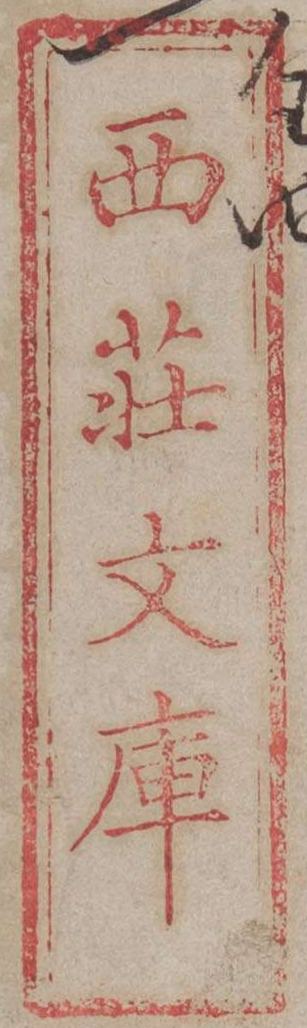 西莊文庫